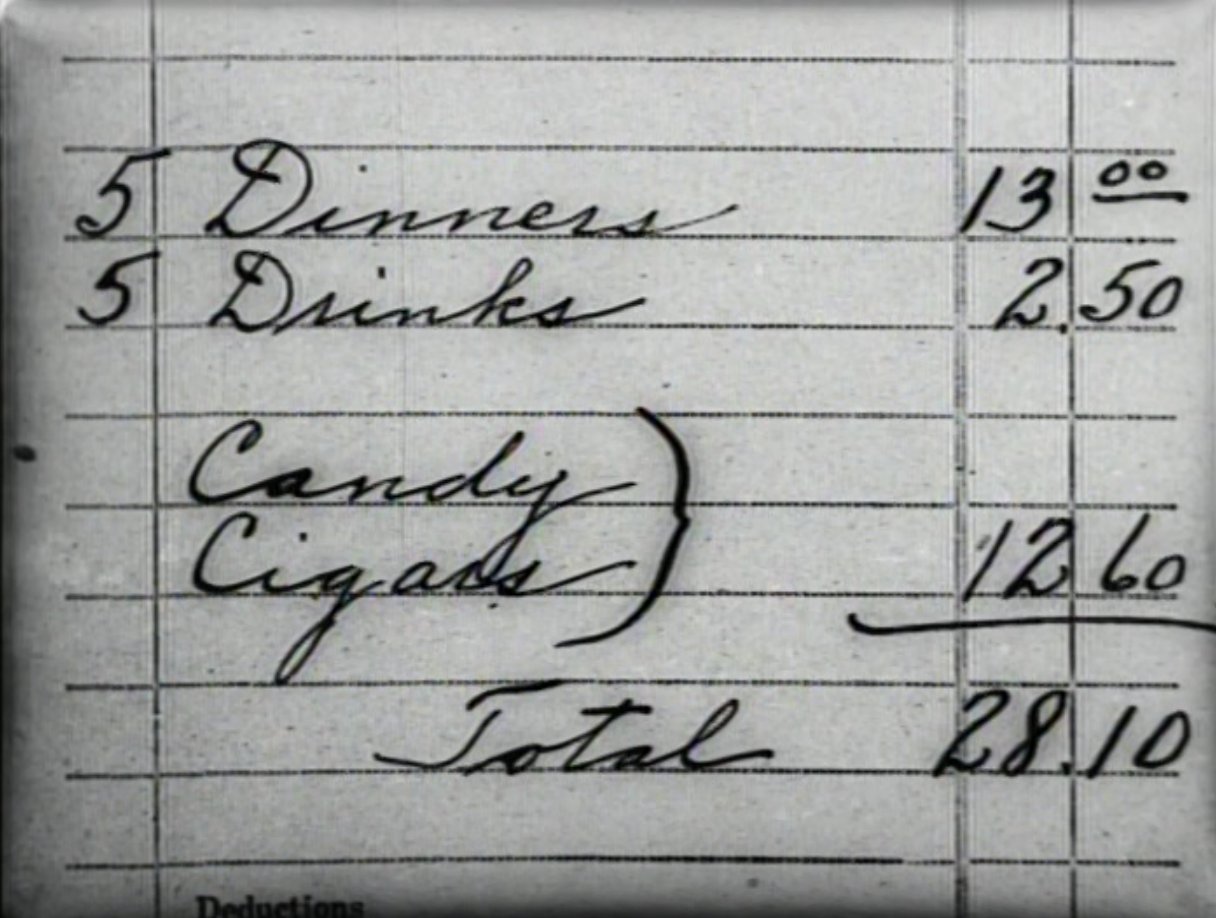 5 Dinners 13 00
5 Drinks 2.50
Candy
Cigars } 12 60
Total 28.10
Deductions